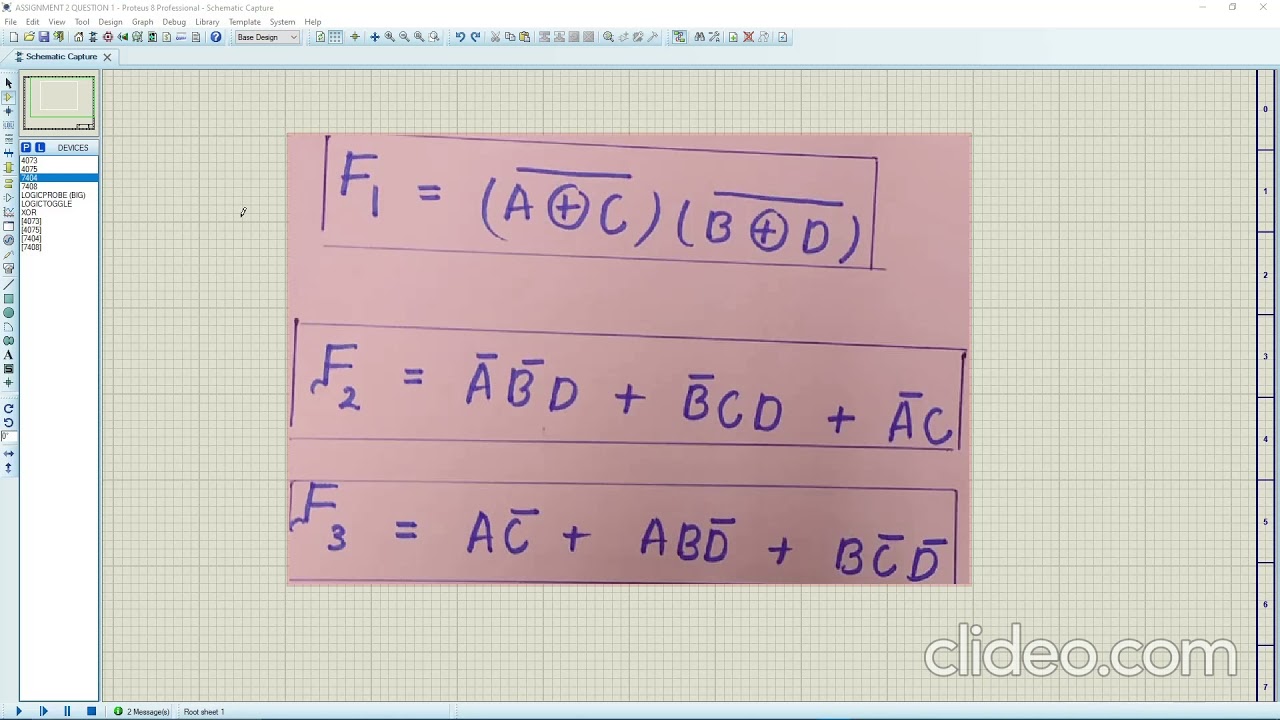 ASSIGNMENT 2 QUESTION 1 - Proteus 8 Professional - Schematic Capture
File Edit View Tool Design Graph Debug Library Template System Help
Base Design
Schematic Capture
P L DEVICES
4073
4075
7404
7408
LOGICPROBE (BIG)
LOGICTOGGLE
XOR
[4073]
[4075]
[7404]
[7408]
F₁ = (A̅ ̅⊕̅ ̅C̅)(B̅ ̅⊕̅ ̅D̅)
F₂ = A̅B̅D + B̅CD + A̅C
F₃ = AC̅ + ABD̅ + BC̅D̅
0
1
2
3
4
5
6
7
0°
clideo.com
2 Message(s) Root sheet 1